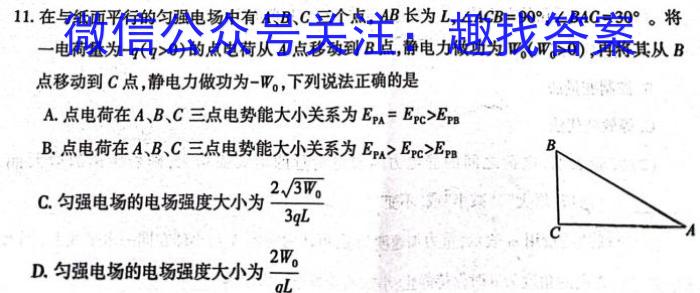 11. 在与纸面平行的匀强电场中有 A、B、C 三个点, AB 长为 L, ∠ACB=90° ∠BAC=30° 。将
微信公众号关注：趣找答案
一电荷量为-q(q>0)的点电荷从 A 点移动到 B 点,静电力做功为 W₀(W₀>0),再将其从 B
点移动到 C 点,静电力做功为-W₀,下列说法正确的是
A. 点电荷在 A、B、C 三点电势能大小关系为 E_PA = E_PC>E_PB
B. 点电荷在 A、B、C 三点电势能大小关系为 E_PA> E_PC>E_PB
C. 匀强电场的电场强度大小为 2√3W₀/3qL
D. 匀强电场的电场强度大小为 2W₀/qL
B
C
A